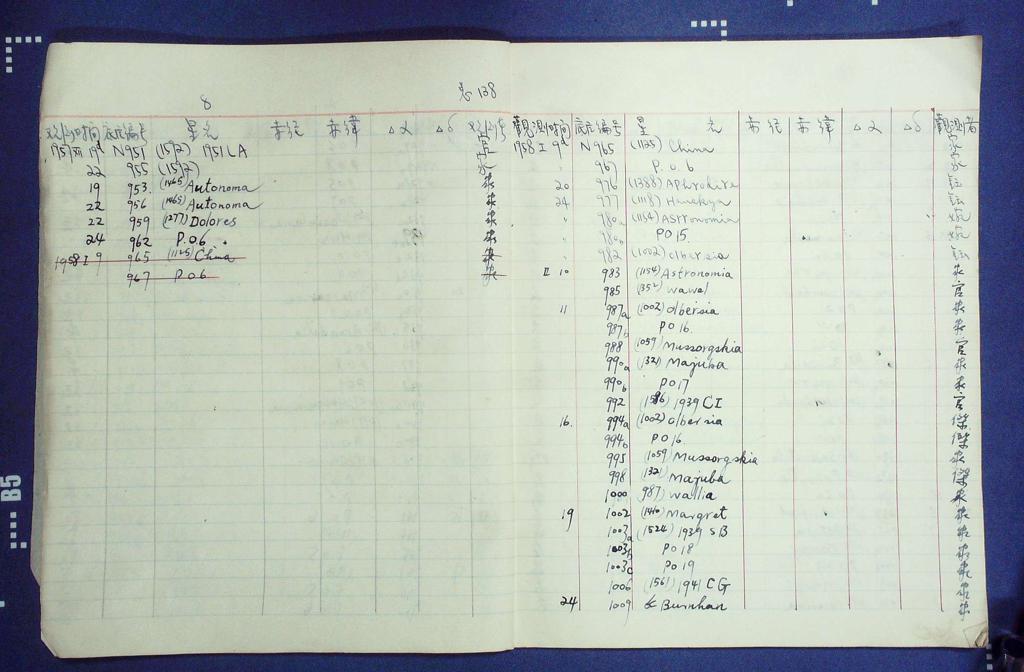 8
总 138
观测时间 底片编号 星 名 赤经 赤緯 Δα Δδ 观测者
1957 XII 19 N951 (1592) 1951 LA 官
22 955 (1592)
19 953 (1465) Autonoma
22 956 (1465) Autonoma
22 959 (1277) Dolores
24 962 P.O.6
1958 I 9 965 (1125) China
967 P.O.6
觀測时间 底片编号 星 名 赤经 赤緯 Δα Δδ 觀測者
1958 I 9 N965 (1125) China
" 967 P.O.6
20 976 (1388) Aphrodite
24 977 (1118) Hanskya
" 980a (1154) Astronomia
" 980b PO15
" 982 (1002) olbersia
II 10 983 (1154) Astronomia
985 (1352) wawel 官
11 987a (1002) olbersia
987b PO16
988 (1059) Mussorgskia 官
990a (1321) Majuba
990b PO17
992 (1586) 1939 CI 官
16 994a (1002) olbersia 傑
994b PO16 傑
995 (1059) Mussorgskia
998 (1321) Majuba 傑
1000 (987) wallia
19 1002 (1410) Margret
1003a (1524) 1939 SB
1003b PO18
1003c PO19
1006 (1561) 1941 CG
24 1009 Burnham
B5